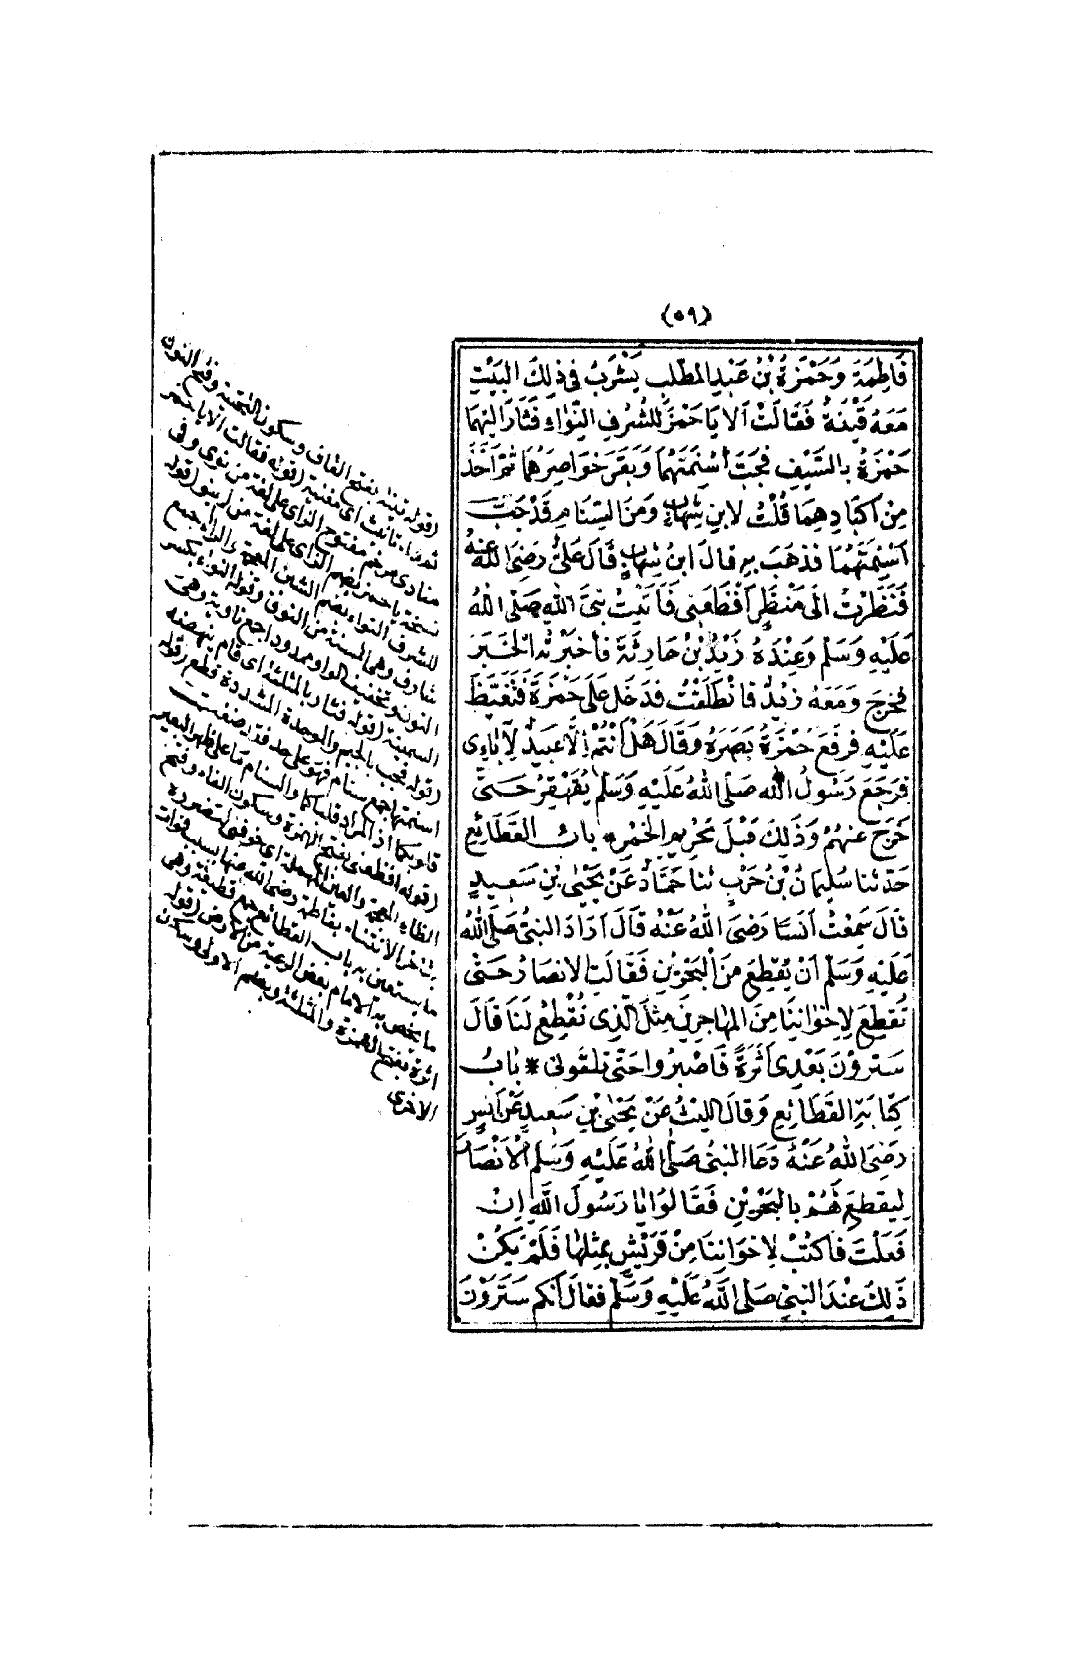 (٥٩)
فَاطِمَةَ وَحَمْزَةُ بْنُ عَبْدِ المطَّلِبِ يَشْرَبُ فِى ذٰلِكَ البَيْتِ
مَعَهُ قَيْنَةٌ فَقَالَتْ اَلَا يَا حَمْزَ لِلشُّرُفِ النِّوَاءِ فَثَارَ اِلَيْهِمَا
حَمْزَةُ بِالسَّيْفِ فَجَبَّ اَسْنِمَتَهُمَا وَبَقَرَ خَوَاصِرَهُمَا ثُمَّ اَخَذَ
مِنْ اَكْبَادِهِمَا قُلْتُ لِابْنِ شِهَابٍ وَمَنَ السَّنَامِ قَدْ جَبَّ
اَسْنِمَتَهُمَا فَذَهَبَ بِهِ قَالَ ابنُ شِهَابٍ قَالَ عَلِىٌّ رَضِىَ اللهُ عَنهُ
فَنَظَرْتُ اِلَى مَنْظَرٍ اَفْظَعَنِى فَاَتَيْتُ نَبِىَّ اللهِ صَلَّى اللهُ
عَلَيْهِ وَسَلَّم وَعِنْدَهُ زَيْدُ بْنُ حَارِثَةَ فَاَخْبَرْتُهُ الْخَبَرَ
فَخَرَجَ وَمَعَهُ زَيْدٌ فَانْطَلَقْتُ فَدَخَلَ عَلَى حَمْزَةَ فَتَغَيَّظَ
عَلَيْهِ فَرَفَعَ حَمْزَةُ بَصَرَهُ وَقَالَ هَلْ اَنْتُمْ اِلَّا عَبِيدٌ لِآبَاءِى
فَرَجَعَ رَسُولُ اللهِ صَلَّى اللهُ عَلَيْهِ وَسَلَّم يُقَهْقِرُ حَتَّى
خَرَجَ عنهُمْ وَذٰلِكَ قَبْلَ تَحْرِيمِ الخَمْرِ * بابُ القَطَائِعِ
حَدَّثَنَا سُلَيمَانُ بْنُ حَرْبٍ ثنا حَمَّادٌ عَنْ يَحْيَى بْنِ سَعِيدٍ
قَالَ سَمِعْتُ اَنَسًا رَضِىَ اللهُ عَنْهُ قَالَ اَرَادَ النبىُّ صَلَّى اللهُ
عَلَيْهِ وَسَلَّم اَنْ يُقْطِعَ مِنَ الْبَحْرَيْنِ فَقَالَتِ الانصَارُ حَتَّى
تُقْطِعَ لِاِخْوَانِنَا مِنَ المُهَاجِرِينَ مِثْلَ الَّذِى تُقْطِعُ لَنَا قَالَ
سَتَرَوْنَ بَعْدِى اَثَرَةً فَاصْبِرُوا حَتَّى تَلْقَونِى * بَابُ
كِتَابَةِ القَطَائِعِ وَقَالَ اللَّيْثُ عَنْ يَحْيَى بْنِ سَعِيدٍ عَنْ اَنَسٍ
رَضِىَ اللهُ عَنْهُ دَعَا النبىُّ صَلَّى اللهُ عَلَيْهِ وَسَلَّم الْاَنْصَارَ
لِيُقطِعَ لَهُمْ بِالْبَحْرَيْنِ فَقَالُوا يَا رَسُولَ اللهِ اِنْ
فَعَلْتَ فَاكْتُبْ لِاِخْوَانِنَا مِنْ قُرَيْشٍ بِمِثْلِهَا فَلَمْ يَكُنْ
ذَلِكَ عِنْدَ النبىِّ صَلَّى اللهُ عَلَيْهِ وَسَلَّم فقَالَ اِنَّكُم سَتَرَوْنَ
(قوله قينة بفتح القاف وسكون التحتية وفتح النون
تأنيث اى مغنية (قوله فقالت الا يا حمز
منادى مرخم مفتوح الزاى على لغة من نوى وفى
نسخة يا حمز بضم الزاى على لغة من لم ينو (قوله
للشرف النواء بضم الشين المعجمة والراء جمع
شارف وهى المسنة من النوق وقوله النواء بكسر
النون وتخفيف الواو ممدودا جمع ناوية وهى
السمينة (قوله فثار بالمثلثة اى قام بنهضة
(قوله فجب بالجيم والموحدة المشددة قطع (قوله
اسنمتهما جمع سنام فهو على حد فقد صغت
قلوبكما اذ المراد قلباكما والسنام ما على ظهر البعير
(قوله افظعنى بفتح الهمزة وسكون الفاء وفتح
الظاء المعجمة والعين المهملة اى خوفنى لتضرره
بتأخر الابتناء بفاطمة رضى الله عنها بسبب فوات
ما يستعين به باب القطائع جمع قطيعة وهى
ما يخص به الامام بعض الرعية من الارض (قوله
اثرة بفتح الهمزة والمثلثة وبضم الاولى وسكون
الاخرى